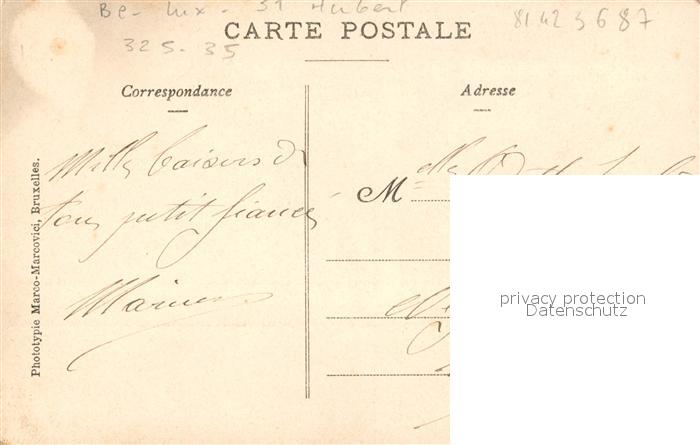 Be - Lux - St Hubert
81423687
325-35
CARTE POSTALE
Correspondance
Adresse
Mille baisers de
ton petit fiancé
M elle
privacy protection
Datenschutz
Phototypie Marco-Marcovici, Bruxelles.